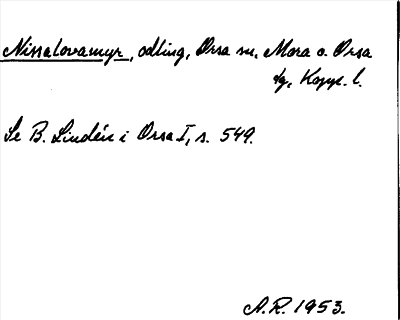 Nissalovamyr, odling, Orsa sn, Mora o. Orsa
tg, Kopp. l.
Se B. Lindén i Orsa I, s. 549.
A.R. 1953.